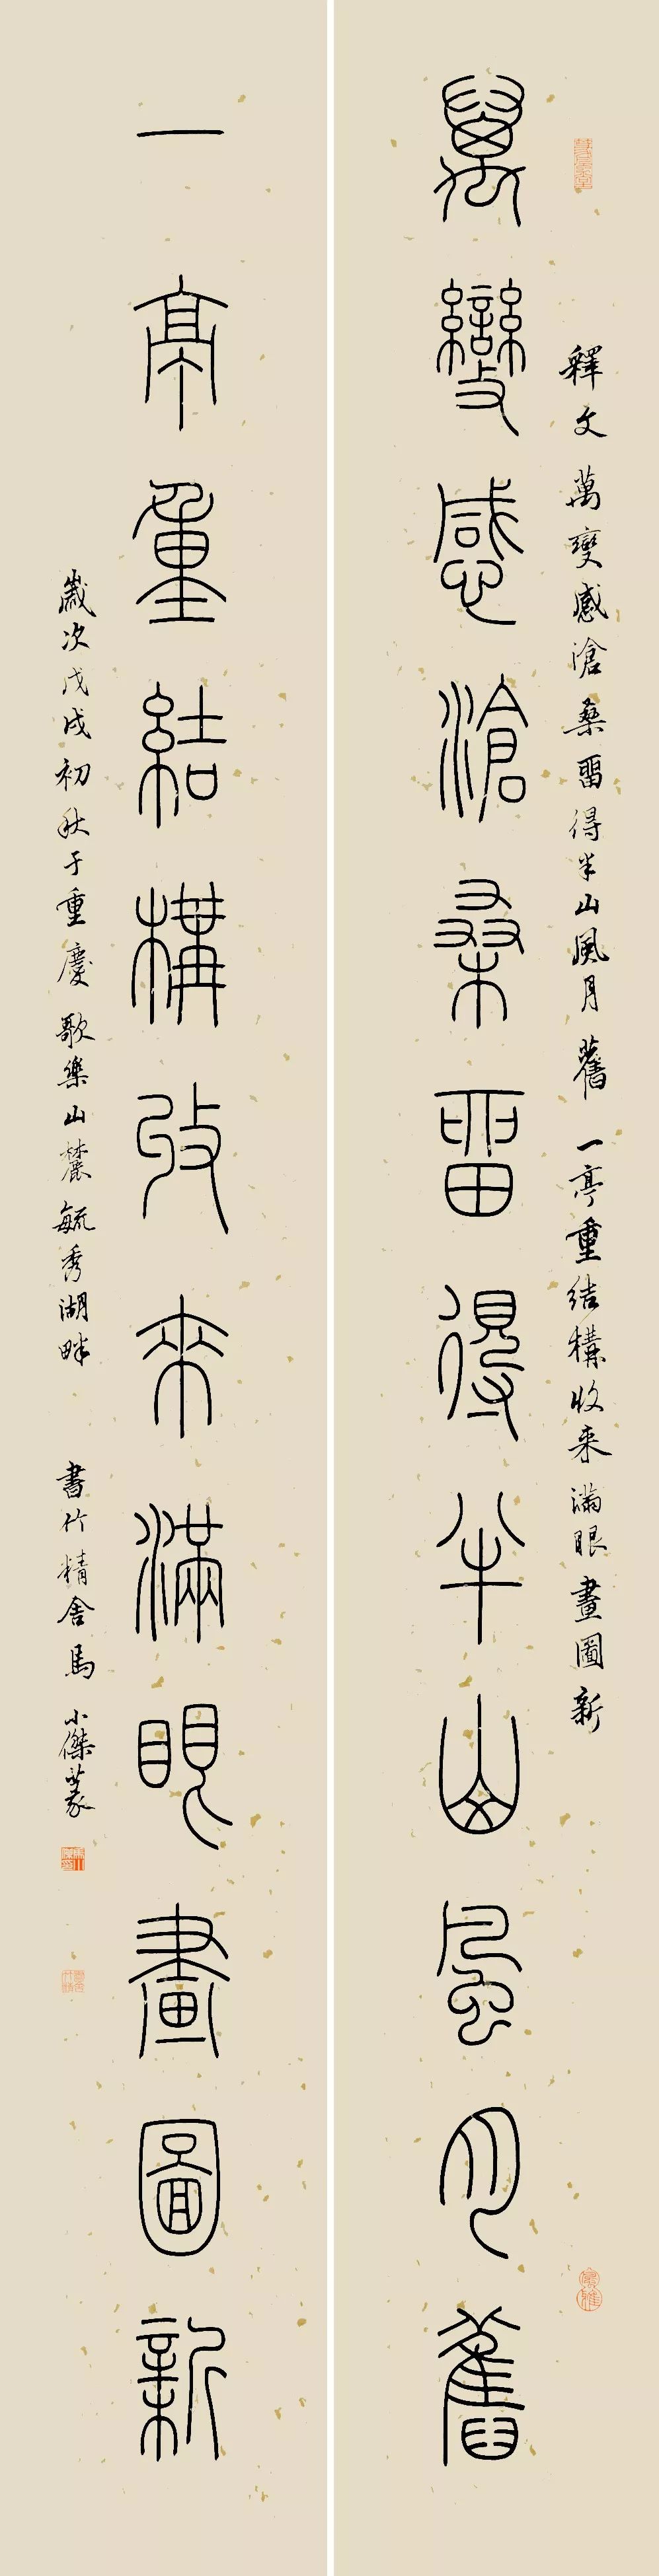 釋文 萬變感滄桑畱得半山風月舊 一亭重結構收来滿眼畫圖新
萬變感滄桑畱得半山風月舊
一亭重結構收來滿眼畫圖新
歲次戊戌初秋于重慶歌樂山麓毓秀湖畔 書竹精舍馬小傑篆